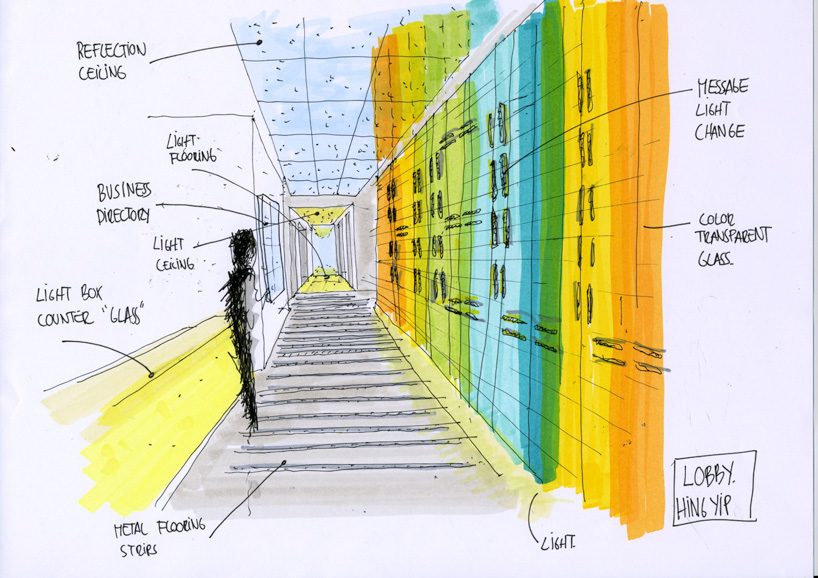 REFLECTION
CEILING
LIGHT
FLOORING
BUSINESS
DIRECTORY
LIGHT
CEILING
LIGHT BOX
COUNTER "GLASS"
METAL FLOORING
STRIPS
MESSAGE
LIGHT
CHANGE
COLOR
TRANSPARENT
GLASS.
LIGHT.
LOBBY.
HING YIP